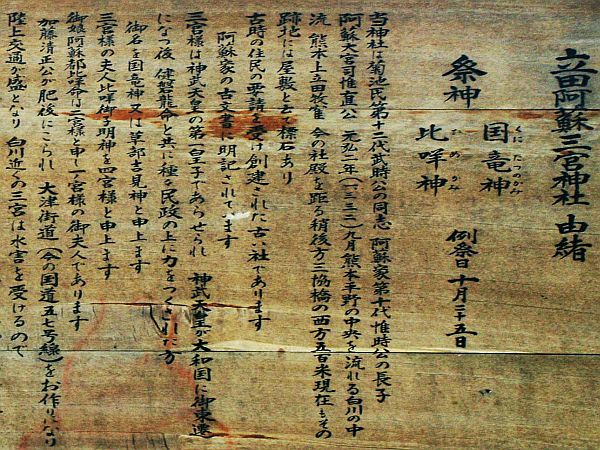 立田阿蘇三宮神社 由緒
祭神 国竜神 例祭日 十月二十五日
くにたつのかみ
比咩神
ひめかみ
当神社は菊池氏第十二代武時公の同志 阿蘇家第十代惟時公の長子
阿蘇大宮司惟直公 元弘二年(一三三二)九月熊本平野の中央を流れる白川の中
流 熊本上立田裝雀 今の社殿を距る稍後方三協橋の西方五百米現在もその
跡地には屋敷と全て標石あり
古時の住民の要請を受け創建された古い社であります
阿蘇家の古文書に明記されています
三宮様は神武天皇の第一皇子であらせられ 神武天皇が大和国に御東遷
になつ後 健磐龍命と共に種々民政の上に力をつくされた方
御名を国竜神又は草部吉見神と申上ます
三宮様の夫人比咩御子明神を四宮様と申上ます
御娘阿蘇都比咩命は二宮様と申し一宮様の御夫人であります
加藤清正公が肥後にこられ 大津街道(今の国道五七号線)をお作りになり
陸上交通が盛となり 白川近くの三宮は水害を受けるので